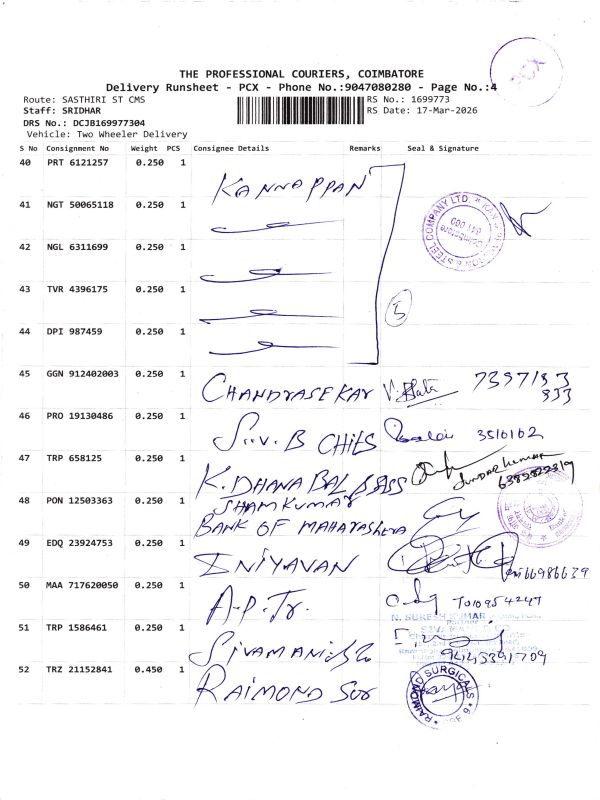 PCX
THE PROFESSIONAL COURIERS, COIMBATORE
Delivery Runsheet - PCX - Phone No.:9047080280 - Page No.:4
Route: SASTHIRI ST CMS
RS No.: 1699773
Staff: SRIDHAR
RS Date: 17-Mar-2026
DRS No.: DCJB169977304
Vehicle: Two Wheeler Delivery
S No Consignment No Weight PCS Consignee Details Remarks Seal & Signature
40 PRT 6121257 0.250 1 KANNAPPAN
41 NGT 50065118 0.250 1
42 NGL 6311699 0.250 1
43 TVR 4396175 0.250 1
5
44 DPI 987459 0.250 1
45 GGN 912402003 0.250 1 CHANDRASEKAR
46 PRO 19130486 0.250 1 S.V.B CHITS 3510102
47 TRP 658125 0.250 1 K. DHANA BAL & SUNDAR KUMAR
48 PON 12503363 0.250 1 SHAM KUMAR
BANK OF MAHARASHTRA
49 EDQ 23924753 0.250 1 INIYAVAN
50 MAA 717620050 0.250 1 A.P.Tr. 7010954247
N. SURESH KUMAR
51 TRP 1586461 0.250 1 SIVAMANI & Co 9445391709
52 TRZ 21152841 0.450 1 RAIMOND Sur
RAIMOND SURGICALS